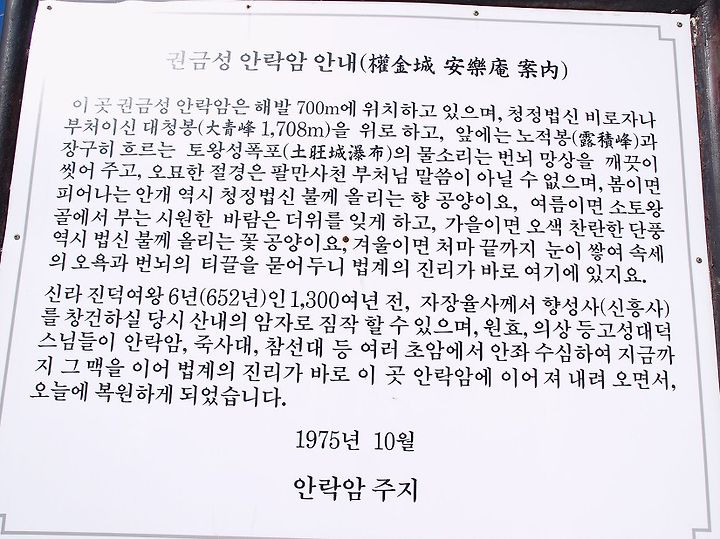 권금성 안락암 안내(權金城 安樂庵 案內)
이 곳 권금성 안락암은 해발 700m에 위치하고 있으며, 청정법신 비로자나
부처이신 대청봉(大青峰 1,708m)을 위로 하고, 앞에는 노적봉(露積峰)과
장구히 흐르는 토왕성폭포(土旺城瀑布)의 물소리는 번뇌 망상을 깨끗이
씻어 주고, 오묘한 절경은 팔만사천 부처님 말씀이 아닐 수 없으며, 봄이면
피어나는 안개 역시 청정법신 불께 올리는 향 공양이요, 여름이면 소토왕
골에서 부는 시원한 바람은 더위를 잊게 하고, 가을이면 오색 찬란한 단풍
역시 법신 불께 올리는 꽃 공양이요, 겨울이면 처마 끝까지 눈이 쌓여 속세
의 오욕과 번뇌의 티끌을 묻어두니 법계의 진리가 바로 여기에 있지요.
신라 진덕여왕 6년(652년)인 1,300여년 전, 자장율사께서 향성사(신흥사)
를 창건하실 당시 산내의 암자로 짐작 할 수 있으며, 원효, 의상 등고성대덕
스님들이 안락암, 죽사대, 참선대 등 여러 초암에서 안좌 수심하여 지금까
지 그 맥을 이어 법계의 진리가 바로 이 곳 안락암에 이어 져 내려 오면서,
오늘에 복원하게 되었습니다.
1975년 10월
안락암 주지